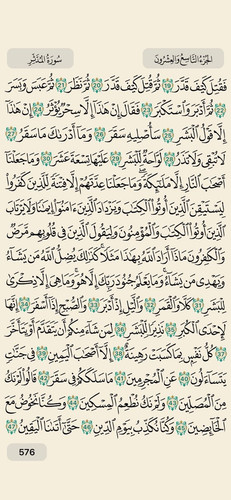 الجُزْءُ التَّاسِعُ وَالعِشْرُونَ
سُورَةُ المُدَّثِّرِ
فَقُتِلَ كَيْفَ قَدَّرَ 19 ثُمَّ قُتِلَ كَيْفَ قَدَّرَ 20 ثُمَّ نَظَرَ 21 ثُمَّ عَبَسَ وَبَسَرَ
22 ثُمَّ أَدْبَرَ وَٱسْتَكْبَرَ 23 فَقَالَ إِنْ هَٰذَآ إِلَّا سِحْرٌ يُؤْثَرُ 24 إِنْ هَٰذَآ
إِلَّا قَوْلُ ٱلْبَشَرِ 25 سَأُصْلِيهِ سَقَرَ 26 وَمَآ أَدْرَىٰكَ مَا سَقَرُ 27
لَا تُبْقِى وَلَا تَذَرُ 28 لَوَّاحَةٌ لِّلْبَشَرِ 29 عَلَيْهَا تِسْعَةَ عَشَرَ 30 وَمَا جَعَلْنَآ
أَصْحَٰبَ ٱلنَّارِ إِلَّا مَلَٰٓئِكَةً وَمَا جَعَلْنَا عِدَّتَهُمْ إِلَّا فِتْنَةً لِّلَّذِينَ كَفَرُوا۟
لِيَسْتَيْقِنَ ٱلَّذِينَ أُوتُوا۟ ٱلْكِتَٰبَ وَيَزْدَادَ ٱلَّذِينَ ءَامَنُوٓا۟ إِيمَٰنًا وَلَا يَرْتَابَ
ٱلَّذِينَ أُوتُوا۟ ٱلْكِتَٰبَ وَٱلْمُؤْمِنُونَ وَلِيَقُولَ ٱلَّذِينَ فِى قُلُوبِهِم مَّرَضٌ
وَٱلْكَٰفِرُونَ مَاذَآ أَرَادَ ٱللَّهُ بِهَٰذَا مَثَلًا كَذَٰلِكَ يُضِلُّ ٱللَّهُ مَن يَشَآءُ
وَيَهْدِى مَن يَشَآءُ وَمَا يَعْلَمُ جُنُودَ رَبِّكَ إِلَّا هُوَ وَمَا هِىَ إِلَّا ذِكْرَىٰ
لِلْبَشَرِ 31 كَلَّا وَٱلْقَمَرِ 32 وَٱلَّيْلِ إِذْ أَدْبَرَ 33 وَٱلصُّبْحِ إِذَآ أَسْفَرَ 34 إِنَّهَا
لَإِحْدَى ٱلْكُبَرِ 35 نَذِيرًا لِّلْبَشَرِ 36 لِمَن شَآءَ مِنكُمْ أَن يَتَقَدَّمَ أَوْ يَتَأَخَّرَ
37 كُلُّ نَفْسٍۭ بِمَا كَسَبَتْ رَهِينَةٌ 38 إِلَّآ أَصْحَٰبَ ٱلْيَمِينِ 39 فِى جَنَّٰتٍ
يَتَسَآءَلُونَ 40 عَنِ ٱلْمُجْرِمِينَ 41 مَا سَلَكَكُمْ فِى سَقَرَ 42 قَالُوا۟ لَمْ نَكُ
مِنَ ٱلْمُصَلِّينَ 43 وَلَمْ نَكُ نُطْعِمُ ٱلْمِسْكِينَ 44 وَكُنَّا نَخُوضُ مَعَ
ٱلْخَآئِضِينَ 45 وَكُنَّا نُكَذِّبُ بِيَوْمِ ٱلدِّينِ 46 حَتَّىٰٓ أَتَىٰنَا ٱلْيَقِينُ 47
576